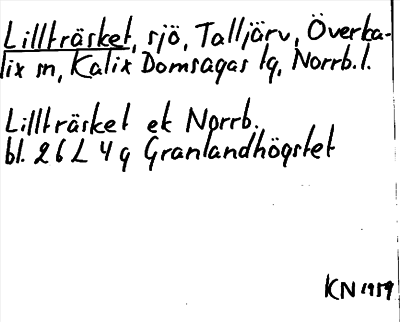 Lillträsket, sjö, Talljärv, Överka-
lix sn, Kalix Domsagas tg, Norrb.l.
Lillträsket ek Norrb.
bl. 26 L 4 g Granlandhögstet
KN 1959